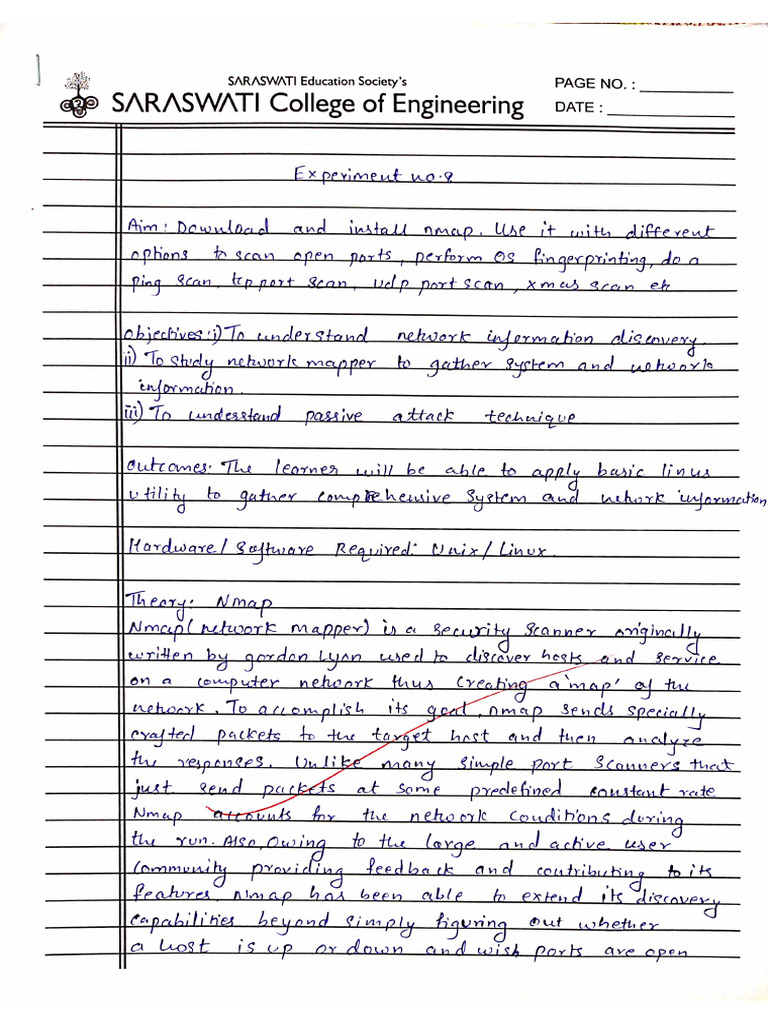 SARASWATI Education Society's
SARASWATI College of Engineering
PAGE NO. :
DATE :
Experiment no.8
Aim: Download and install nmap. Use it with different
options to scan open ports, perform OS fingerprinting, do a
ping scan, tcp port scan, udp port scan, xmas scan etc
Objectives: i) To understand network information discovery.
ii) To study network mapper to gather system and network
information.
iii) To understand passive attack technique
Outcomes: The learner will be able to apply basic linus
utility to gather comprehensive system and network information
Hardware/Software Required: Unix/Linux.
Theory: Nmap
Nmap (network mapper) is a security scanner originally
written by gordon Lyon used to discover hosts and service
on a computer network thus creating a 'map' of the
network. To accomplish its goal, nmap sends specially
crafted packets to the target host and then analyze
the responses. Unlike many simple port scanners that
just send packets at some predefined constant rate
Nmap accounts for the network conditions during
the run. Also, owing to the large and active user
community providing feedback and contributing to its
features. Nmap has been able to extend its discovery
capabilities beyond simply figuring out whether
a host is up or down and wish ports are open